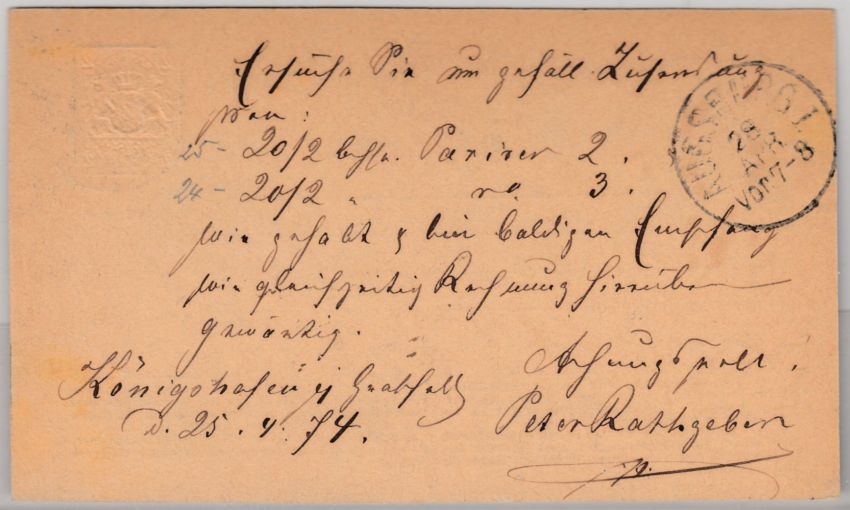 Ersuche Sie um gefäll. Zusendung
von:
25 – 20/2 Pariser 2.
24 – 20/2 " do 3.
wie gehabt & bin baldigen Empfang
wie gleichzeitig Rechnung hierüber
gewärtig.
Achtungsvoll!
Königshofen i/ Grabfeld
d. 25. 4. 74.
Peter Rathgeber
AUGSBURG I.
28
APR
VOR 7-8